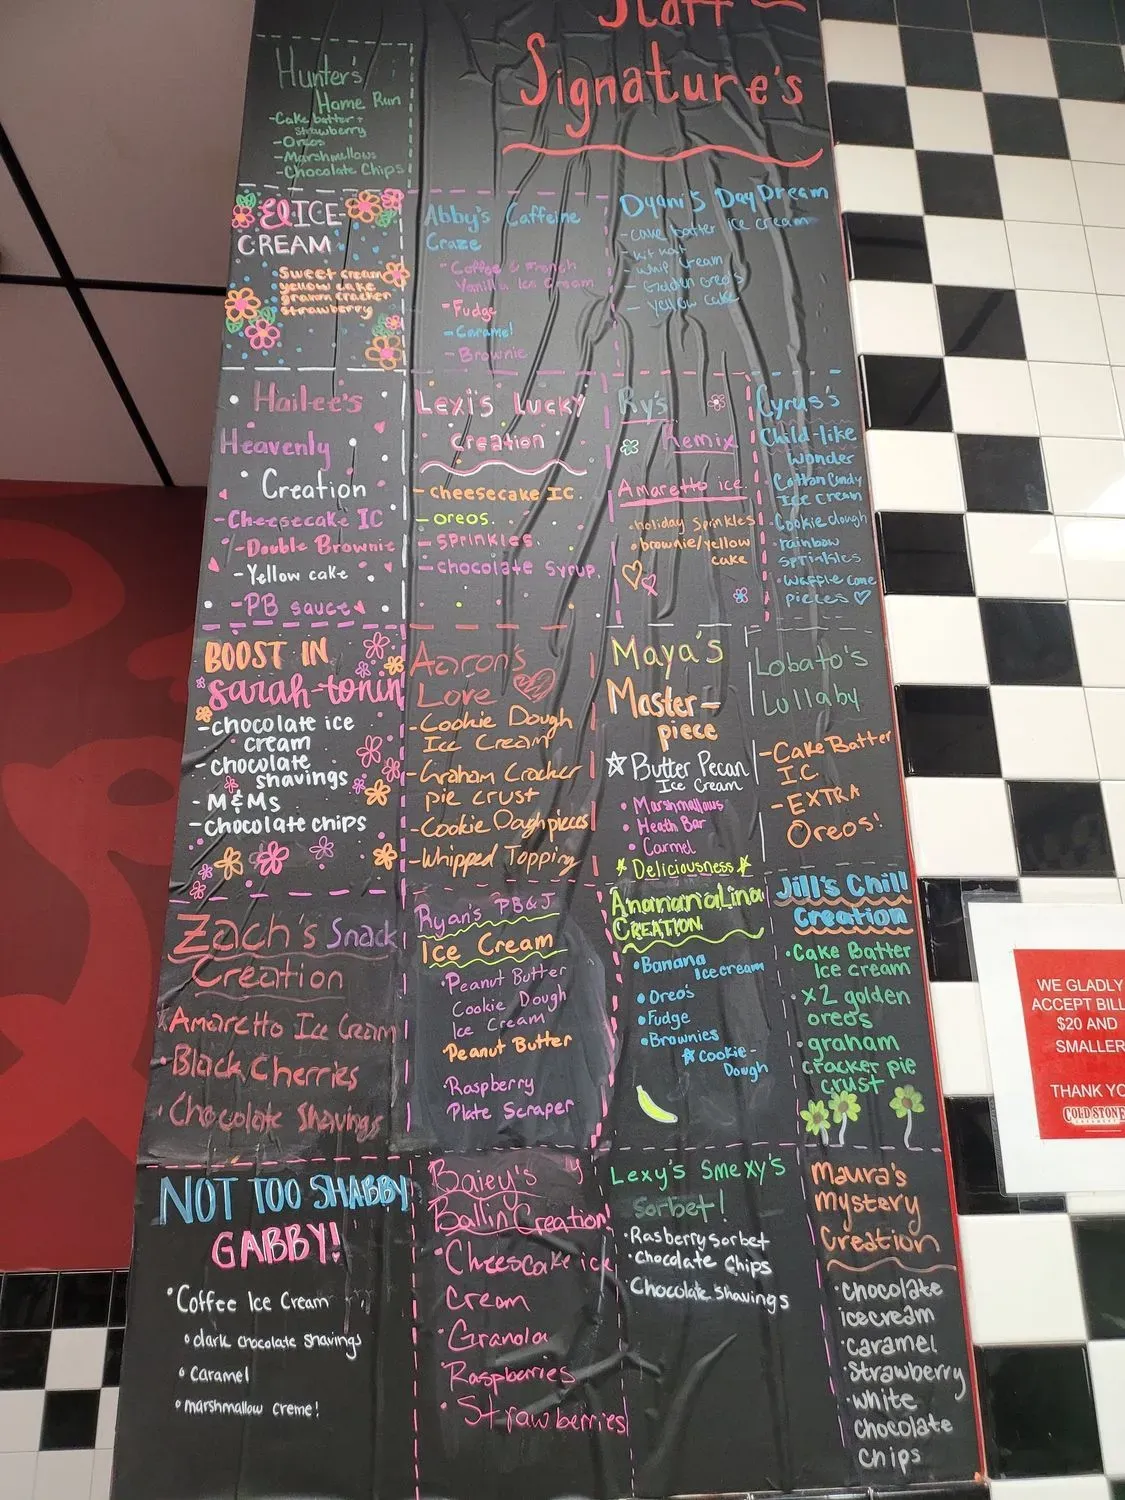 Staff
Signature's
Hunter's
Home Run
-Cake batter +
strawberry
-Oreos
-Marshmallows
-Chocolate Chips
ICE
CREAM
Sweet cream
yellow cake
graham cracker
strawberry
Abby's Caffeine
Craze
-Coffee & French
Vanilla Ice Cream
-Fudge
-Caramel
-Brownie
Dyani's Day Dream
-cake batter ice cream
-kit kat
-whip cream
-Golden oreo's
-yellow cake
Hailee's
Heavenly
Creation
-Cheesecake IC
-Double Brownie
-Yellow cake
-PB sauce
Lexi's Lucky
creation
-cheesecake IC.
-oreos.
-sprinkles.
-chocolate syrup.
Ry's
Remix
Amaretto ice.
•holiday sprinkles
•brownie/yellow
cake
Cyrus's
Child-like
wonder
•Cotton Candy
Ice Cream
•Cookie dough
•rainbow
sprinkles
•waffle cone
pieces ♡
BOOST IN
sarah-tonin
-chocolate ice
cream
-chocolate
shavings
-M&Ms
-chocolate chips
Aaron's
Love
-Cookie Dough
Ice Cream
-Graham Cracker
pie crust
-Cookie Dough pieces
-Whipped Topping
Maya's
Master-
piece
☆ Butter Pecan
Ice Cream
•Marshmallows
•Heath Bar
•Carmel
☆ Deliciousness ☆
Lobato's
Lullaby
-Cake Batter
I.C
-EXTRA
Oreos!
Zach's Snack
Creation
•Amaretto Ice Cream
•Black Cherries
•Chocolate Shavings
Ryan's PB&J
Ice Cream
•Peanut Butter
Cookie Dough
Ice Cream
•Peanut Butter
•Raspberry
Plate Scraper
AnananaLina
CREATION
•Banana
Ice cream
•Oreo's
•Fudge
•Brownies
☆ Cookie-
Dough
Jill's Chill
Creation
•Cake Batter
Ice cream
•x2 golden
oreo's
•graham
cracker pie
crust
WE GLADLY
ACCEPT BILL
$20 AND
SMALLER
THANK YO
COLD STONE
CREAMERY
NOT TOO SHABBY
GABBY!
•Coffee Ice Cream
•dark chocolate shavings
•caramel
•marshmallow creme!
Baiey's
Ballin Creation!
•Cheescake ice
cream
•Granola
•Raspberries
•Strawberries
Lexy's Smexy's
sorbet!
•Rasberry sorbet
•Chocolate Chips
•Chocolate shavings
Maura's
mystery
Creation
•Chocolate
icecream
•caramel
•Strawberry
•white
chocolate
chips